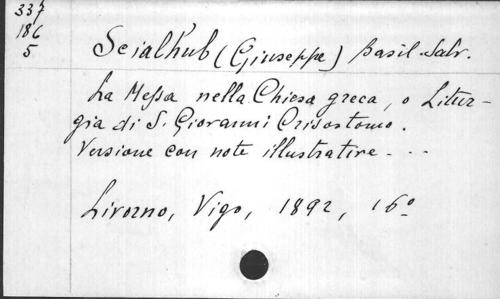 337
186
5
Scialhub (Giuseppe) basil. Salv.
La Messa nella Chiesa greca, o Litur-
gia di S. Giovanni Crisostomo.
Versione con note illustrative - . .
Livorno, Vigo, 1892, 16º